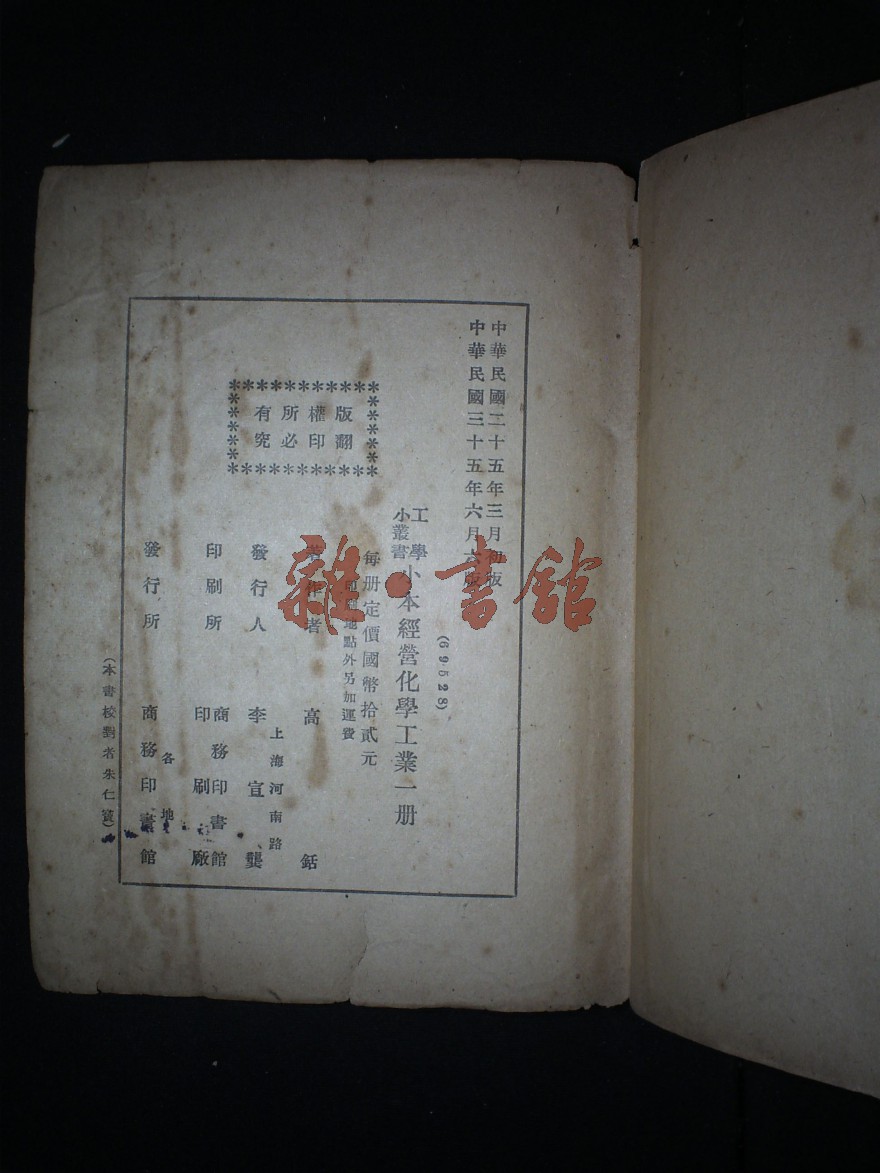 中華民國二十五年三月初版
中華民國三十五年六月六版
(69528)
工學
小叢書
小本經營化學工業一册
每册定價國幣拾貳元
印刷地點外另加運費
版權所有
翻印必究
著作者 高銛
發行人 李宣龔
上海河南路
印刷所 商務印書館
印刷廠
發行所 商務印書館
各地
(本書校對者朱仁寶)
雜·書舘